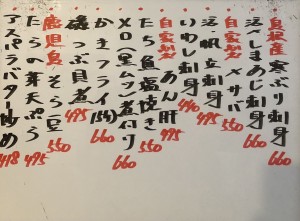 島根産 寒ぶり刺身 660
活〆しまあじ刺身
自家製 〆サバ 550
活帆立刺身 495
いわし刺身 440
自家製 あん肝 495
たち魚塩焼き 550
XO(黒ムツ)煮付け 660
かきフライ 660
磯つぶ貝煮 495
鹿児島 そら豆 550
たらの芽天ぷら 495
アスパラバター炒め 418